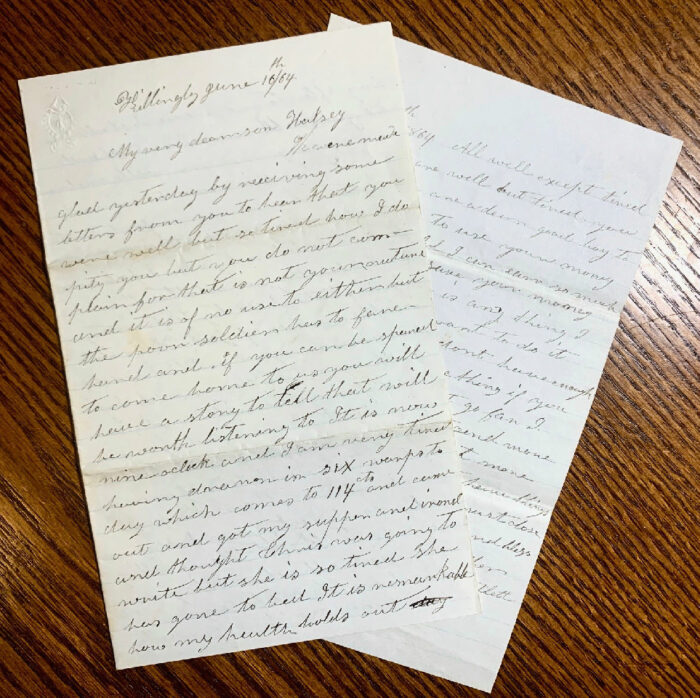 Killingly June 16th/64
My very dear son Halsey
We were made
glad yesterday by receiving some
letters from you to hear that you
were well but so tired how I do
pity you but you do not com-
plain for that is not your nature
and it is of no use to either but
the poor soldier has to fare
hard and if you can be spared
to come home to us you will
have a story to tell that will
be worth listening to It is now
nine oclock and I am very tired
having drawn in six warps to
day which comes to 114 cts and came
out and got my supper and ironed
and thought Chris was going to
write but she is so tired she
has gone to bed It is remarkable
how my health holds out day
th
64 All well except tired
are well but tired you
are a dear good boy to
to use your money
I can earn so much
save your money
is any thing I
want to do it
dont have enough
thing if you
go far I
send more
more
have
must close
and bless